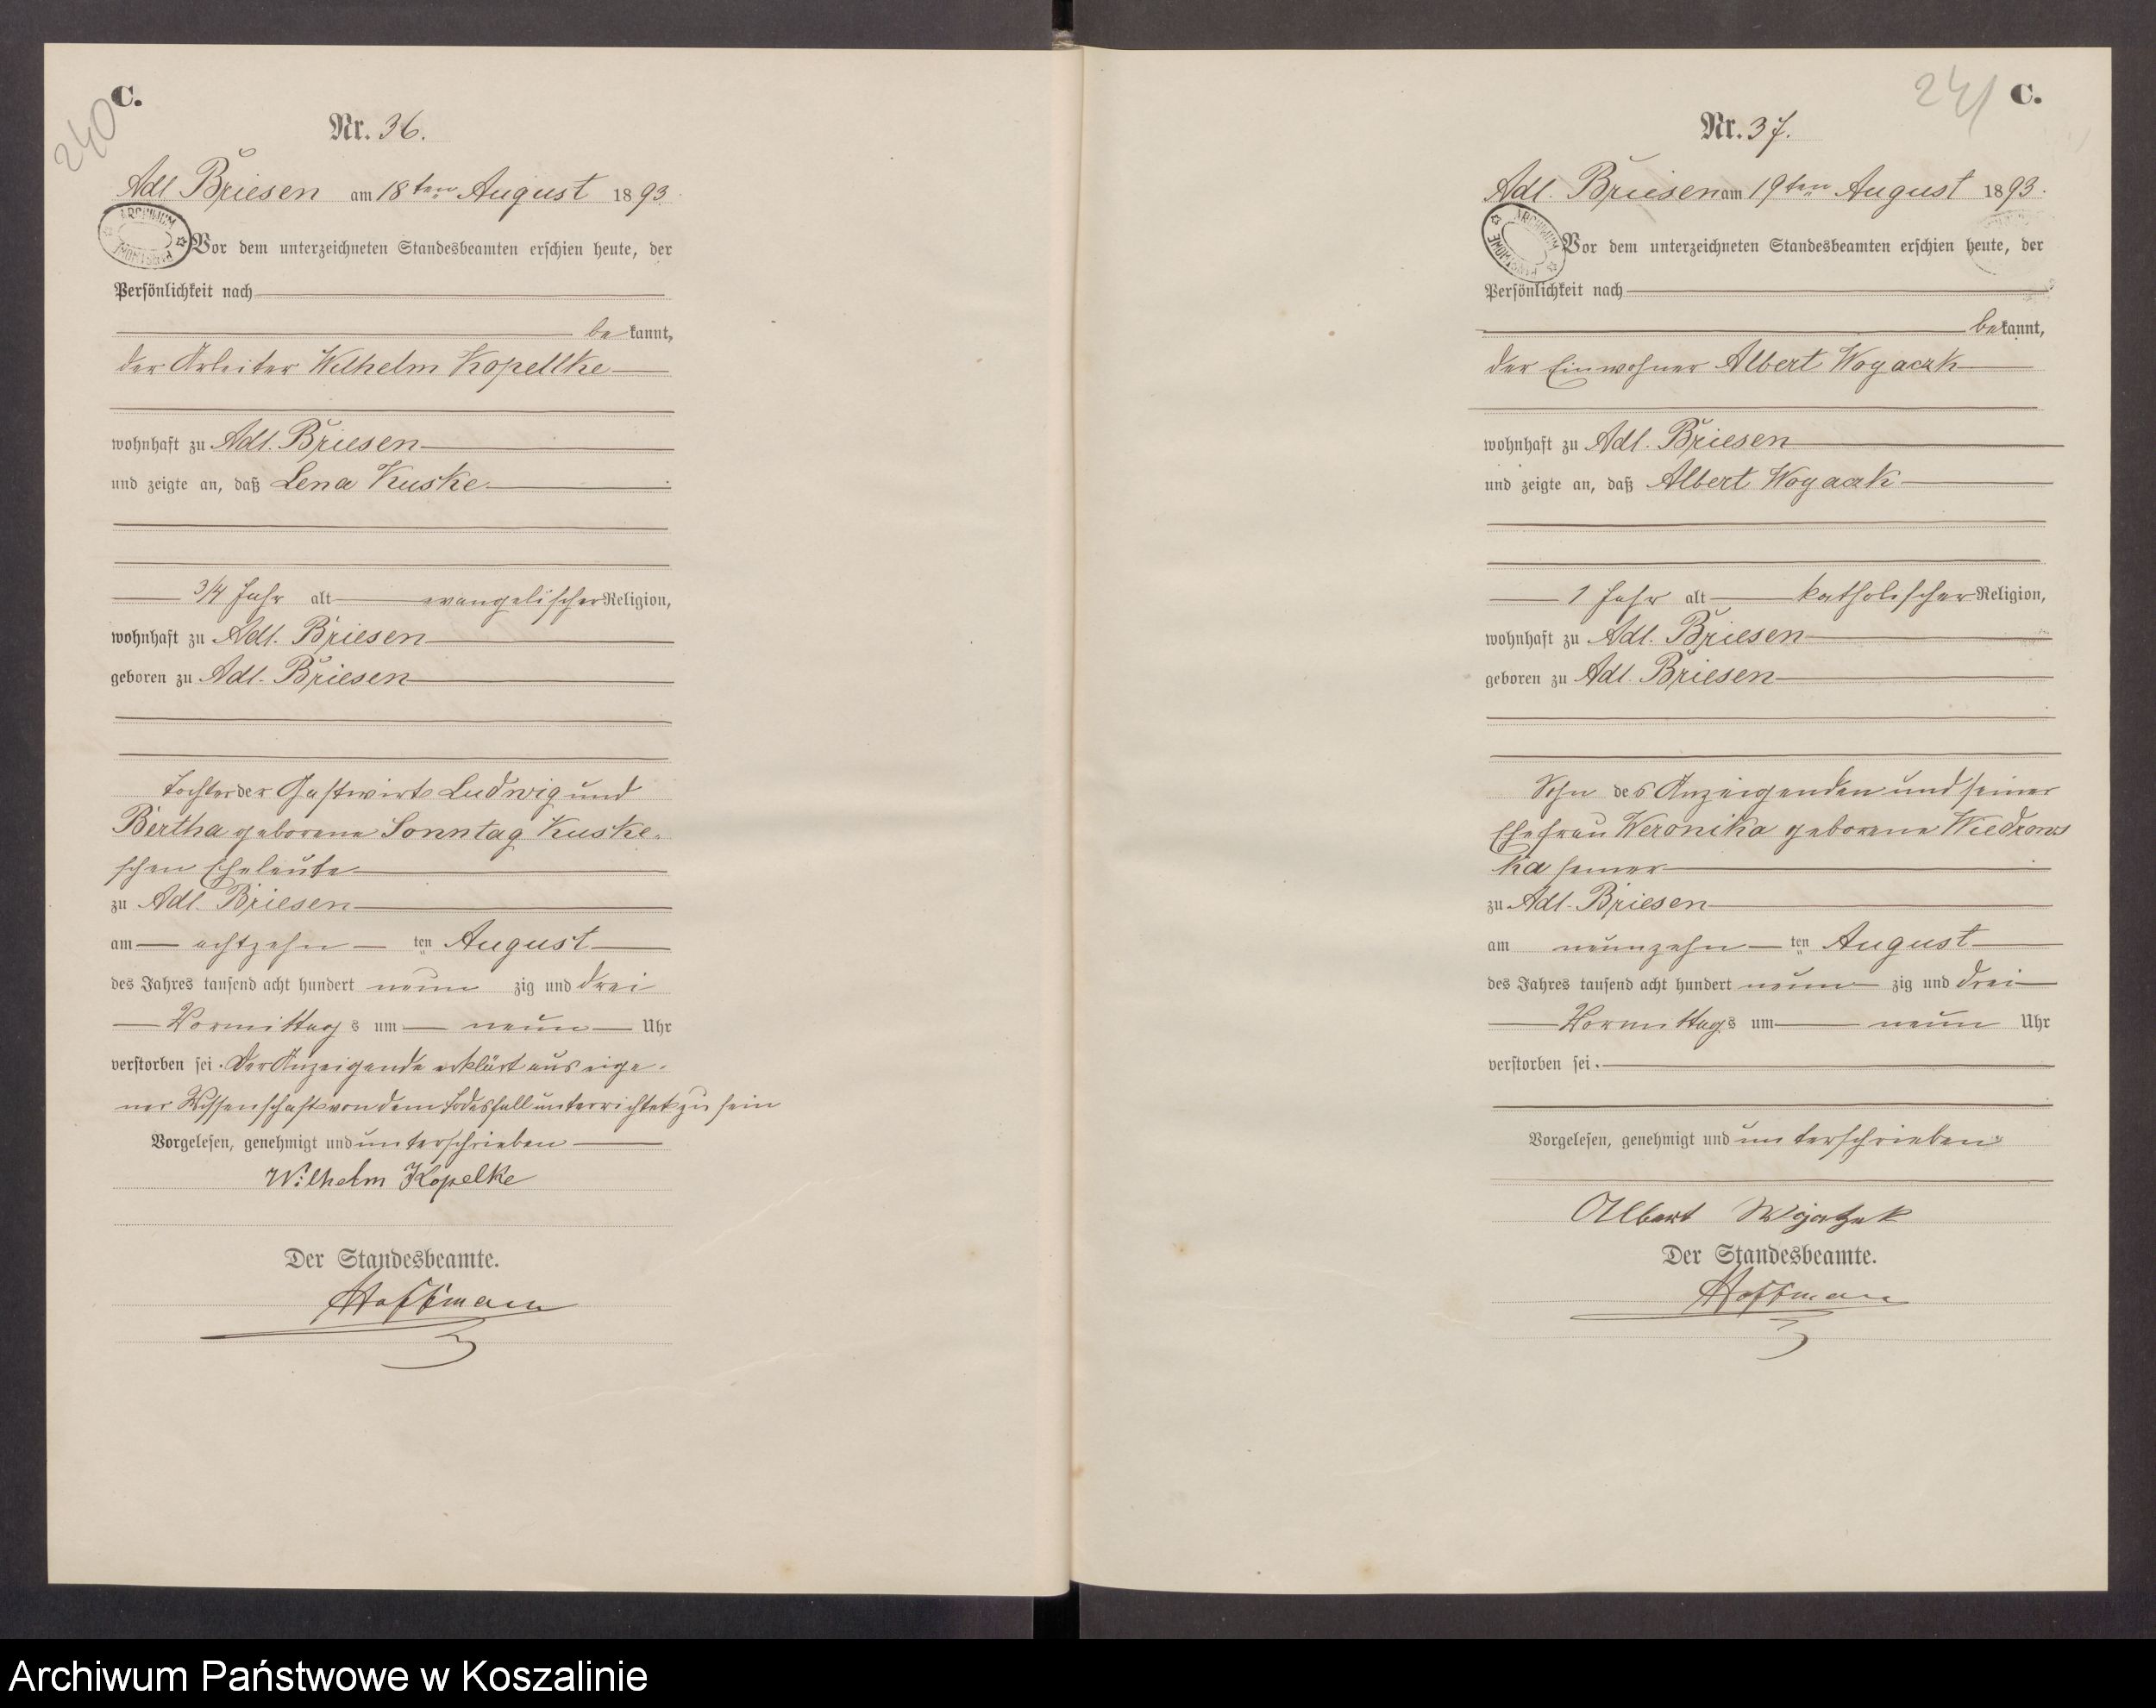 240
C.
Nr. 36.
Adl Briesen am 18ten August 1893.
ARCHIWUM PAŃSTWOWE
Vor dem unterzeichneten Standesbeamten erschien heute, der
Persönlichkeit nach
be kannt,
der Arbeiter Wilhelm Kopellke
wohnhaft zu Adl. Briesen
und zeigte an, daß Lena Kuske
3/4 Jahr alt evangelischer Religion,
wohnhaft zu Adl. Briesen
geboren zu Adl. Briesen
Tochter der Gastwirt Ludwig und
Bertha geborene Sonntag Kuske-
schen Eheleute
zu Adl. Briesen
am achtzehn ten August
des Jahres tausend acht hundert neun zig und drei
Vormittag s um neun Uhr
verstorben sei. Der Anzeigende erklärt aus eige-
ner Wissenschaft von dem Todesfall unterrichtet zu sein
Vorgelesen, genehmigt und unterschrieben
Wilhelm Kopelke
Der Standesbeamte.
Hoffmann
241
C.
Nr. 37.
Adl. Briesen am 19ten August 1893.
ARCHIWUM PAŃSTWOWE
Vor dem unterzeichneten Standesbeamten erschien heute, der
Persönlichkeit nach
be kannt,
der Einwohner Albert Wogaczk
wohnhaft zu Adl. Briesen
und zeigte an, daß Albert Wogaczk
1 Jahr alt katholischer Religion,
wohnhaft zu Adl. Briesen
geboren zu Adl. Briesen
Sohn des Anzeigenden und seiner
Ehefrau Weronika geborene
ka seiner
zu Adl. Briesen
am neunzehn ten August
des Jahres tausend acht hundert neun zig und drei
Vormittag s um neun Uhr
verstorben sei.
Vorgelesen, genehmigt und unterschrieben
Albert
Der Standesbeamte.
Hoffmann
Archiwum Państwowe w Koszalinie